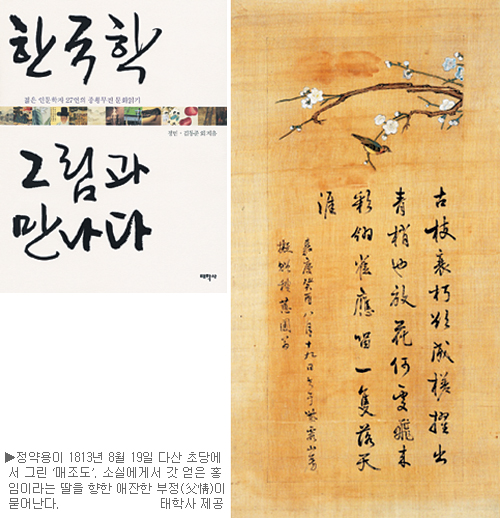 한국학
젊은 인문학자 27인의 종횡무진 문화읽기
정민 · 김동준 외 지음
그림과
만나다
태학사
古枝衰朽欲成槎擢出
青梢也放花何處飛來
彩翎雀應留一隻落天
涯
嘉慶癸酉八月十九日書于紫霞山房
擬贈種蕙圃翁
▶정약용이 1813년 8월 19일 다산 초당에
서 그린 ‘매조도’. 소실에게서 갓 얻은 홍
임이라는 딸을 향한 애잔한 부정(父情)이
묻어난다. 태학사 제공